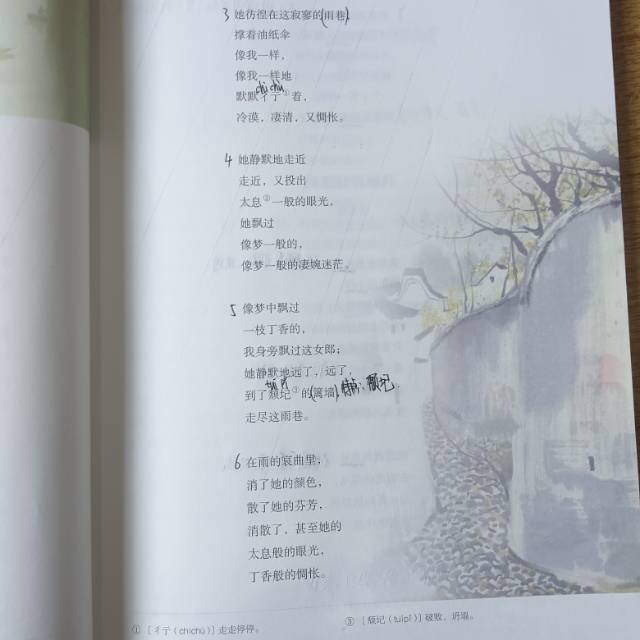 3 她彷徨在这寂寥的(雨巷)
撑着油纸伞
像我一样,
像我一样地
chì chù
默默彳亍①着,
冷漠,凄清,又惆怅。
4 她静默地走近
走近,又投出
太息②一般的眼光,
她飘过
像梦一般的,
像梦一般的凄婉迷茫。
5 像梦中飘过
一枝丁香的,
我身旁飘过这女郎;
她静默地远了,远了,
到了颓圮③的(篱墙)
走尽这雨巷。
6 在雨的哀曲里,
消了她的颜色,
散了她的芬芳,
消散了,甚至她的
太息般的眼光,
丁香般的惆怅。
① [彳亍(chìchù)] 走走停停。
③ [颓圮(tuípǐ)] 破败,坍塌。